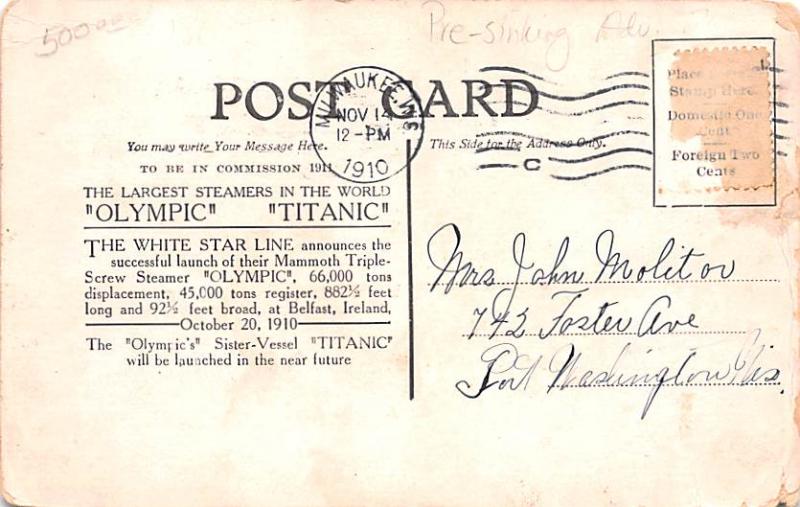 500.00
Pre-sinking Adv.
POST CARD
MILWAUKEE, WIS
NOV 14
12-PM
1910
C
Stamp Here.
Domestic One
Cent
Foreign Two
Cents
You may write Your Message Here.
This Side for the Address Only.
TO BE IN COMMISSION 1911
THE LARGEST STEAMERS IN THE WORLD
"OLYMPIC" "TITANIC"
THE WHITE STAR LINE announces the
successful launch of their Mammoth Triple-
Screw Steamer "OLYMPIC", 66,000 tons
displacement, 45,000 tons register, 882½ feet
long and 92½ feet broad, at Belfast, Ireland,
October 20, 1910
The "Olympic's" Sister-Vessel "TITANIC"
will be launched in the near future
Mrs John Molitor
742 Foster Ave
Port Washington Wis.